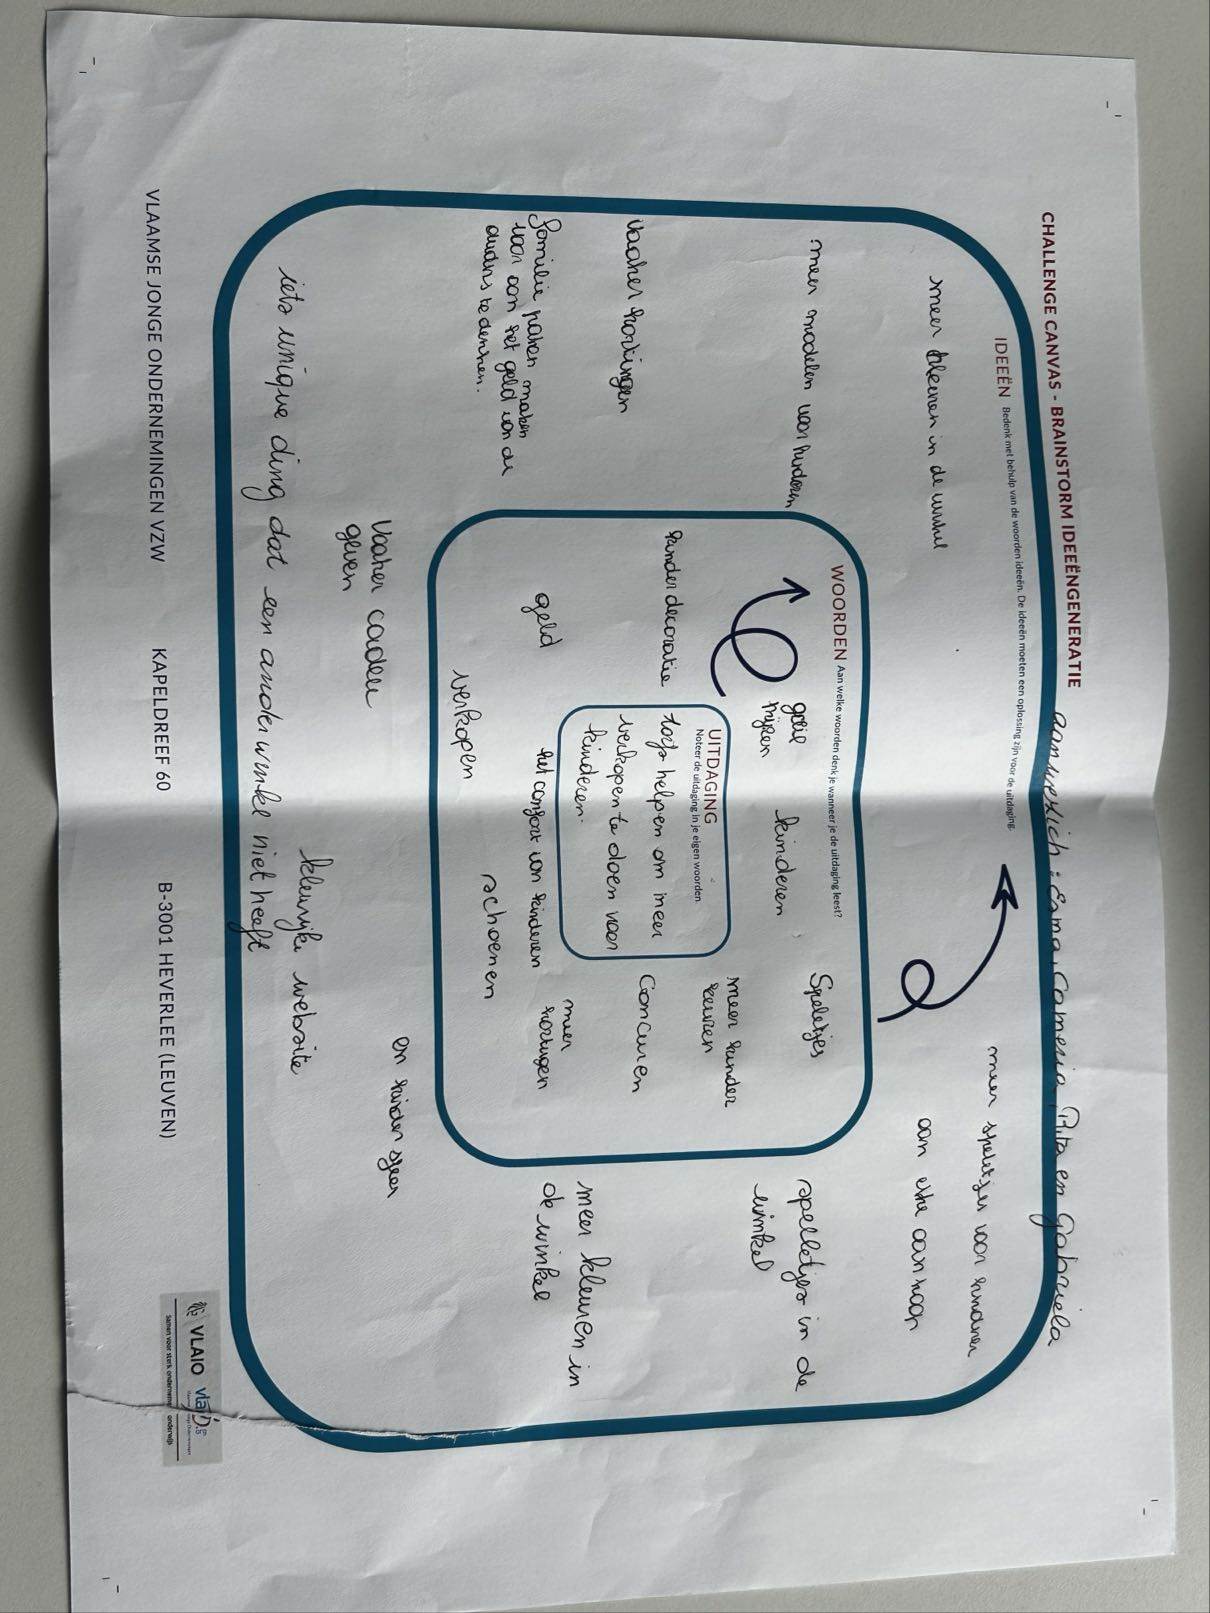 CHALLENGE CANVAS - BRAINSTORM IDEEËNGENERATIE
aanwezich : Esma, Cameria, Rita en Gabriela
IDEEËN Bedenk met behulp van de woorden ideeën. De ideeën moeten een oplossing zijn voor de uitdaging.
meer kleuren in de winkel
meer speletjes voor kinderen
aan elke aankoop
meer modelen voor kinderen
spelletjes in de
winkel
vaaker kortingen
meer kleuren in
de winkel
familie paken maken
voor aan het geld van de
ouders te denken.
Vaaker cadeu
geven
en kinder sfeer
kleurijke website
iets unique ding dat een ander winkel niet heeft
WOORDEN Aan welke woorden denk je wanneer je de uitdaging leest?
goeie
prijzen
kinderen
Speletjes
meer kinder
keuzen
kinder decoratie
Concuren
geld
het comfort van kinderen
meer
kortingen
verkopen
schoenen
UITDAGING
Noteer de uitdaging in je eigen woorden.
torfs helpen om meer
verkopen te doen voor
kinderen.
VLAAMSE JONGE ONDERNEMINGEN VZW
KAPELDREEF 60
B-3001 HEVERLEE (LEUVEN)
VLAIO
vlajo
Samen voor sterk ondernemend onderwijs